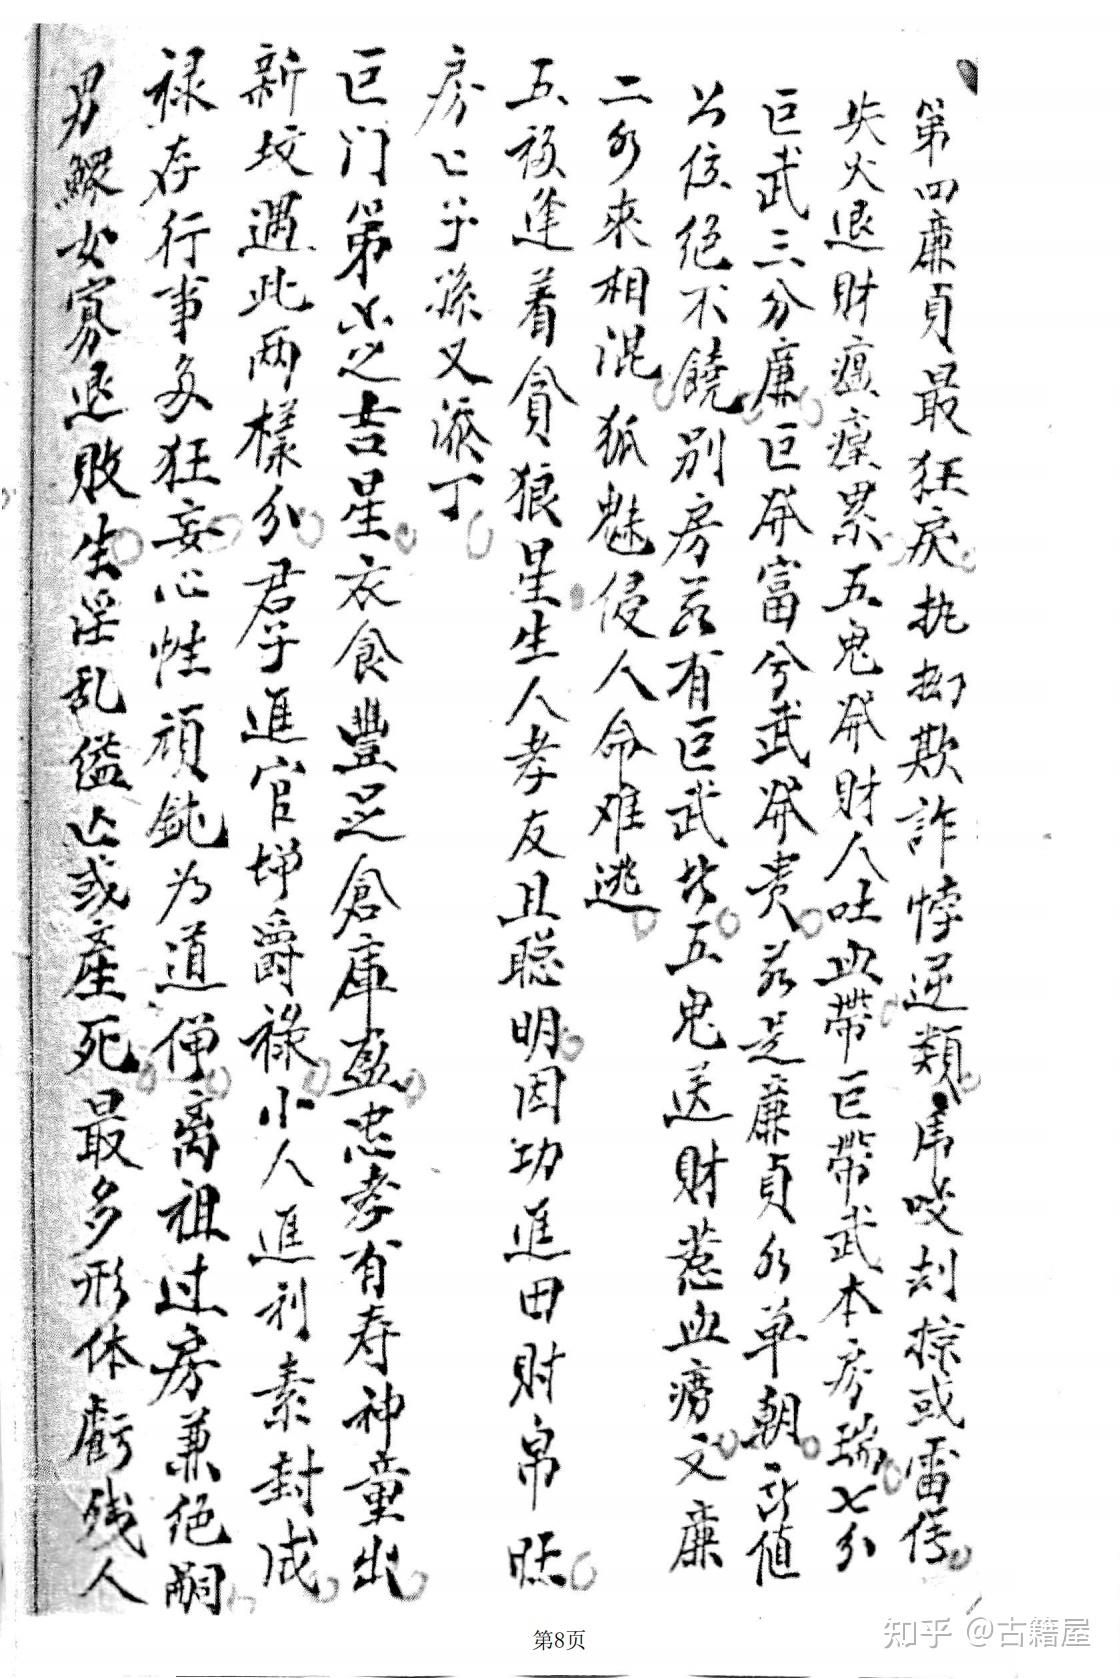 第四廉貞最狂戾执拗欺詐悖逆類虎咬刦掠或雷
失火退財瘟㾮累五鬼発財人吐血帶巨帶武本房瑞七分
巨武三分廉巨発富兮武発贵若是廉貞水单朝
位绝不饒别房若有巨武共五鬼送財惹血痨文廉
二水來相混狐魅侵人命难逃
五移逢着貪狼星生人孝友且聪明因功進田財帛
房亡子孫又添丁
巨门第之吉星衣食豐足倉庫盈忠孝有寿神童出
新坟遇此两樣分君子進官增爵禄小人進利素封成
禄存行事多狂妄心性頑鈍为道僧离祖过房兼绝嗣
男鰥女寡退败生淫乱缢亡或產死最多形体虧残人
第8页
知乎 @古籍屋